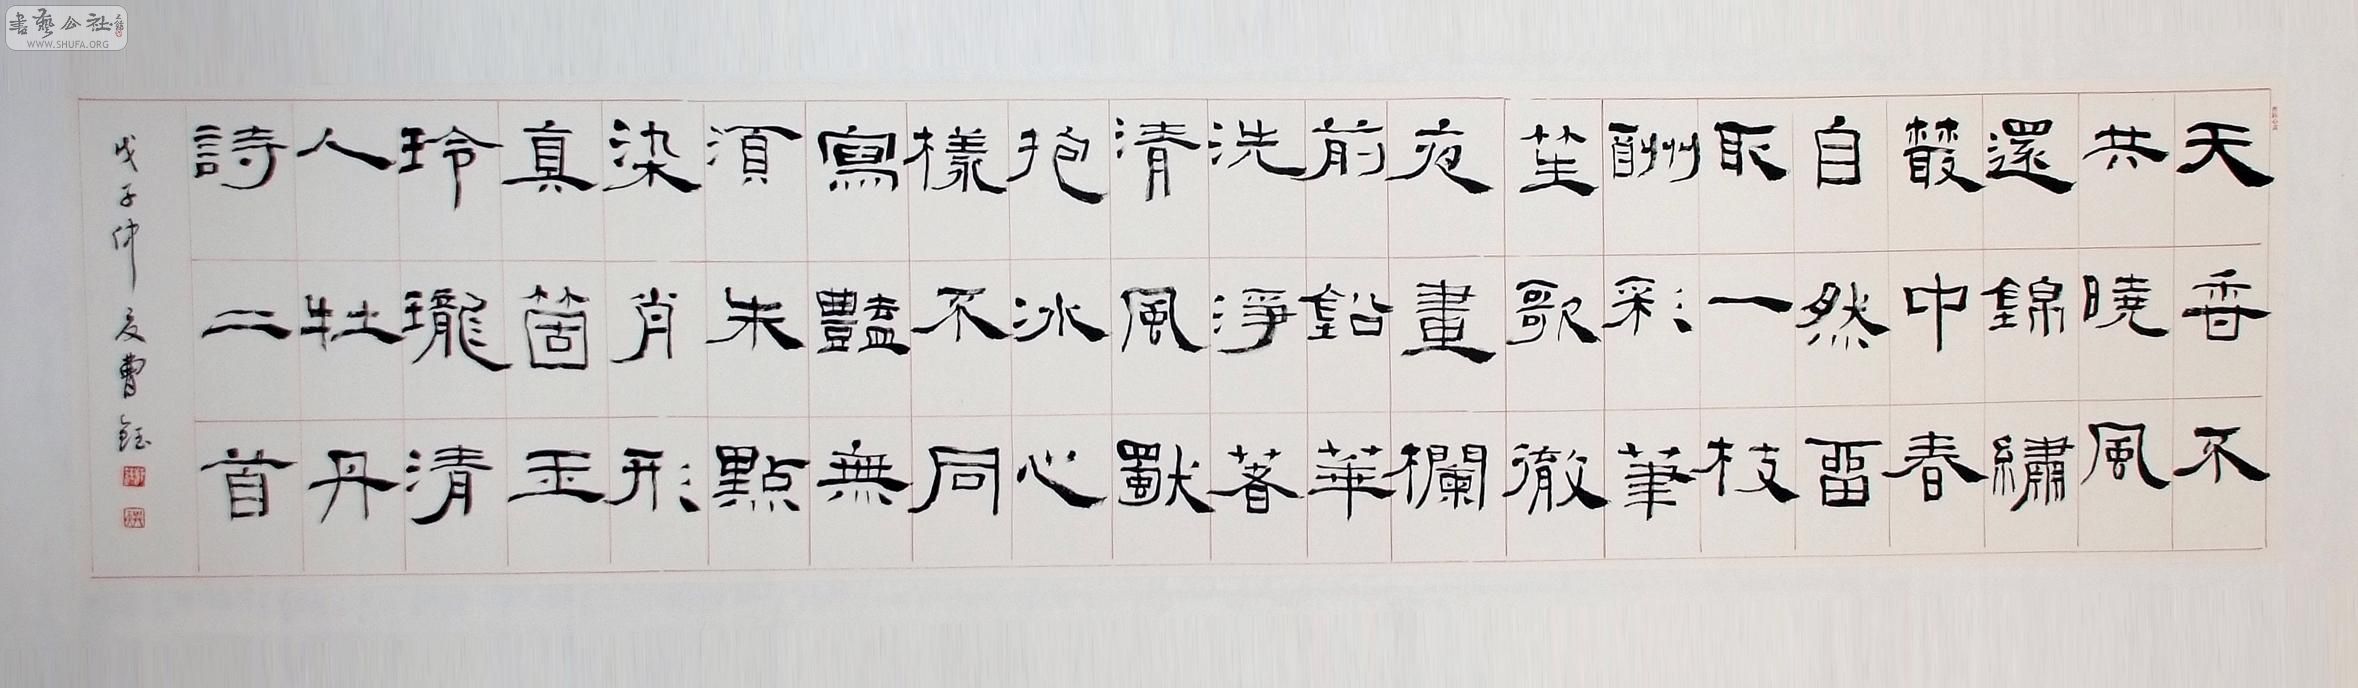 書藝公社
WWW.SHUFA.ORG
天香不
共曉風
還錦繡
叢中春
自然畱
取一枝
酬彩筆
笙歌徹
夜畫欄
前鉛華
洗淨著
清風獨
抱冰心
樣不同
寫豔無
湏朱點
染肖形
真箇玉
玲瓏清
人牡丹
詩二首
戊子仲夏曹鈺